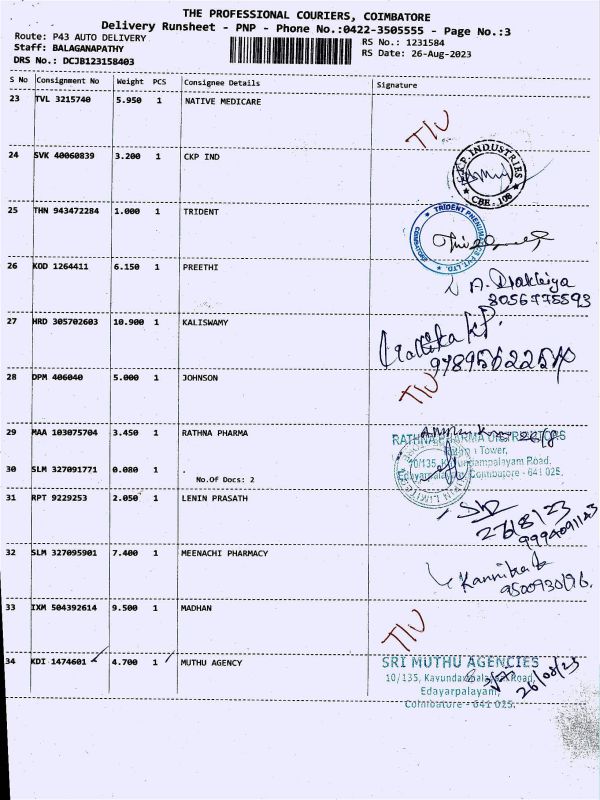 THE PROFESSIONAL COURIERS, COIMBATORE
Delivery Runsheet - PNP - Phone No.:0422-3505555 - Page No.:3
Route: P43 AUTO DELIVERY
RS No.: 1231584
Staff: BALAGANAPATHY
RS Date: 26-Aug-2023
DRS No.: DCJB123158403
S No Consignment No Weight PCS Consignee Details Signature
23 TVL 3215740 5.950 1 NATIVE MEDICARE
24 SVK 40060839 3.200 1 CKP IND
CKP INDUSTRIES
CBE - 108
25 THN 943472284 1.000 1 TRIDENT
TRIDENT PNEUMATICS PVT. LTD.
COIMBATORE
26 KOD 1264411 6.150 1 PREETHI
8056775593
27 HRD 305702603 10.900 1 KALISWAMY
28 DPM 406040 5.000 1 JOHNSON
29 MAA 103075704 3.450 1 RATHNA PHARMA
RATHNA PHARMA DISTRIBUTORS
Tower,
10/135, Kavundampalayam Road,
Edayarpalayam, Coimbatore - 641 025.
30 SLM 327091771 0.080 1
No.Of Docs: 2
31 RPT 9229253 2.050 1 LENIN PRASATH
9994091143
32 SLM 327095901 7.400 1 MEENACHI PHARMACY
33 IXM 504392614 9.500 1 MADHAN
34 KDI 1474601 4.700 1 MUTHU AGENCY
SRI MUTHU AGENCIES
10/135, Kavundampalayam Road,
Edayarpalayam,
Coimbatore - 641 025.
26/08/23